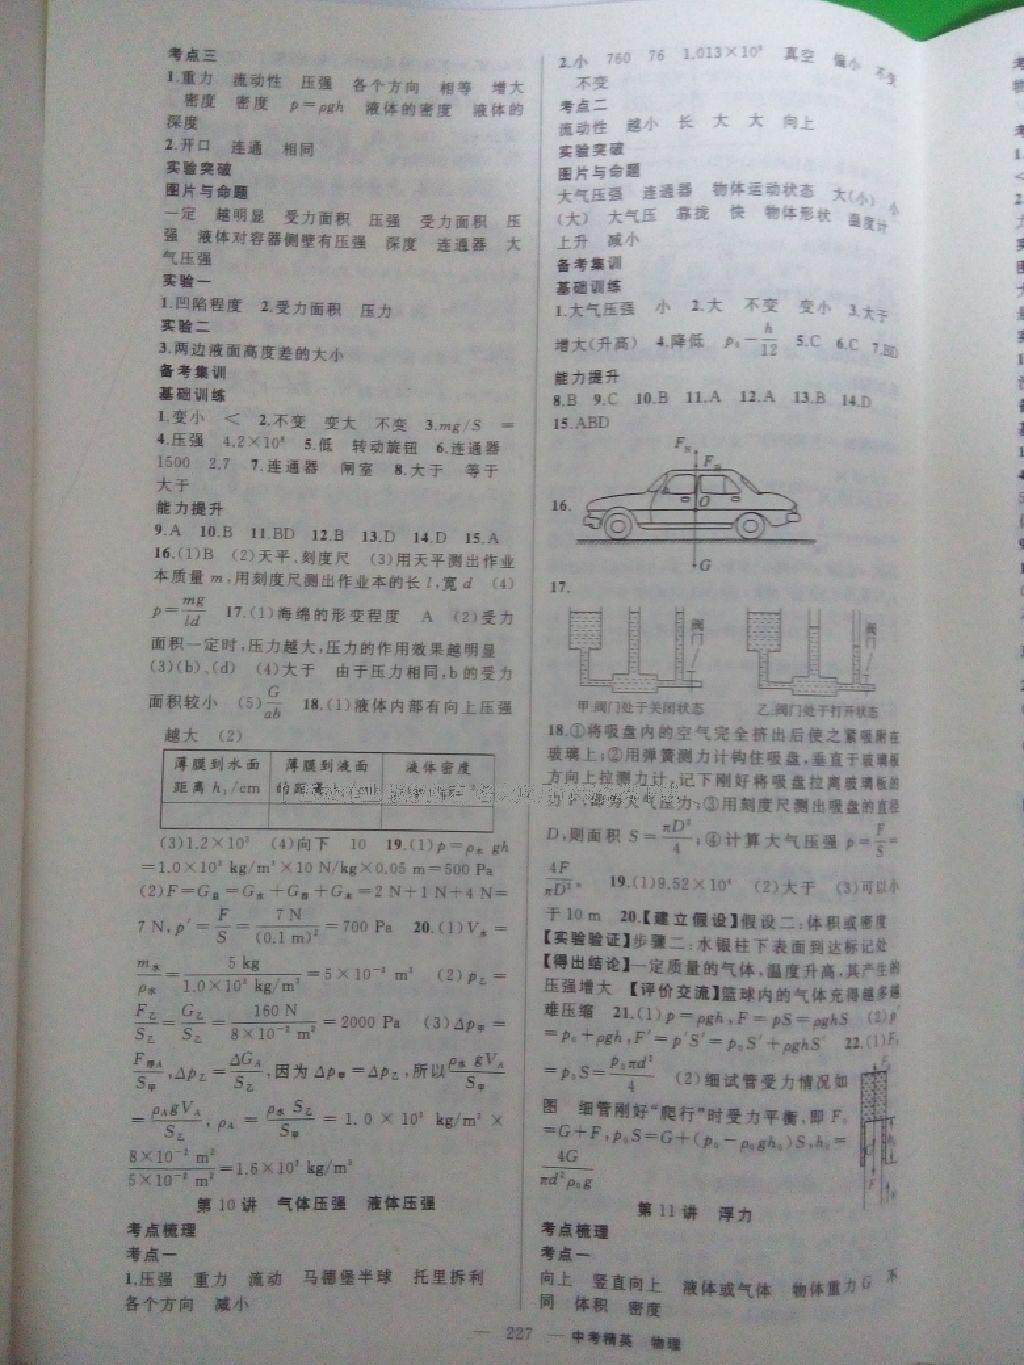 考点三
1.重力 流动性 压强 各个方向 相等 增大
密度 密度 p=ρgh 液体的密度 液体的
深度
2.开口 连通 相同
实验突破
图片与命题
一定 越明显 受力面积 压强 受力面积 压
强 液体对容器侧壁有压强 深度 连通器 大
气压强
实验一
1.凹陷程度 2.受力面积 压力
实验二
3.两边液面高度差的大小
备考集训
基础训练
1.变小 < 2.不变 变大 不变 3.mg/S =
4.压强 5.低 转动旋钮 6.连通器
1500 2.7 7.连通器 闸室 8.大于 等于
大于
能力提升
9.A 10.B 11.BD 12.B 13.D 14.D 15.A
16.(1)B (2)天平、刻度尺 (3)用天平测出作业
本质量 m,用刻度尺测出作业本的长 l,宽 d (4)
p=mg/ld 17.(1)海绵的形变程度 A (2)受力
面积一定时,压力越大,压力的作用效果越明显
(3)(b)、(d) (4)大于 由于压力相同,b 的受力
面积较小 (5)G/ab 18.(1)液体内部有向上压强
越大 (2)
薄膜到水面 薄膜到液面 液体密度
距离 h₁/cm 的距离
(3)1.2×10³ (4)向下 10 19.(1)p=ρ水 gh
=1.0×10³ kg/m³×10 N/kg×0.05 m=500 Pa
(2)F=G总=G水+G容+G木=2 N+1 N+4 N=
7 N,p′=F/S=7 N/(0.1 m)²=700 Pa 20.(1)V水=
m水/ρ水=5 kg/1.0×10³ kg/m³=5×10⁻³ m³ (2)p乙=
F乙/S乙=G乙/S乙=160 N/8×10⁻² m²=2000 Pa (3)Δp甲=
F浮A/S甲,Δp乙=ΔGA/S乙,因为 Δp甲=Δp乙,所以ρ水 gVA/S甲
=ρAgVA/S乙,ρA=ρ水 S乙/S甲=1.0×10³ kg/m³×
8×10⁻² m²/5×10⁻² m²=1.6×10³ kg/m³
第 10 讲 气体压强 液体压强
考点梳理
考点一
1.压强 重力 流动 马德堡半球 托里拆利
各个方向 减小
2.小 760 76 1.013×10⁵ 真空 偏小 不变
不变
考点二
流动性 越小 长 大 大 向上
实验突破
图片与命题
大气压强 连通器 物体运动状态 大(小) 小
(大) 大气压 靠拢 快 物体形状 温度计
上升 减小
备考集训
基础训练
1.大气压强 小 2.大 不变 变小 3.大于
增大(升高) 4.降低 p₀-h/12 5.C 6.C 7.BD
能力提升
8.B 9.C 10.B 11.A 12.A 13.B 14.D
15.ABD
16.
O
G
17.
阀门
阀门
甲:阀门处于关闭状态 乙:阀门处于打开状态
18.①将吸盘内的空气完全挤出后使之紧吸附在
玻璃上;②用弹簧测力计钩住吸盘,垂直于玻璃板
方向上拉测力计,记下刚好将吸盘拉离玻璃板的
力 F,即为大气压力;③用刻度尺测出吸盘的直径
D,则面积 S=πD²/4;④计算大气压强 p=F/S=
4F/πD²。 19.(1)9.52×10⁴ (2)大于 (3)可以小
于 10 m 20.【建立假设】假设二:体积或密度
【实验验证】步骤二:水银柱下表面到达标记处
【得出结论】一定质量的气体,温度升高,其产生的
压强增大 【评价交流】篮球内的气体充得越多越
难压缩 21.(1)p=ρgh,F=pS=ρghS (2)p′
=p₀+ρgh,F′=p′S′=p₀S′+ρghS′ 22.(1)F₁
=p₀S=p₀πd²/4 (2)细试管受力情况如
图 细管刚好“爬行”时受力平衡,即 F₀
=G+F,p₀S=G+(p₀-ρ₀gh₀)S,h₀=
4G/πd²ρ₀g
第 11 讲 浮力
考点梳理
考点一
向上 竖直向上 液体或气体 物体重力 G 不
同 体积 密度
— 227 — 中考精英 物理